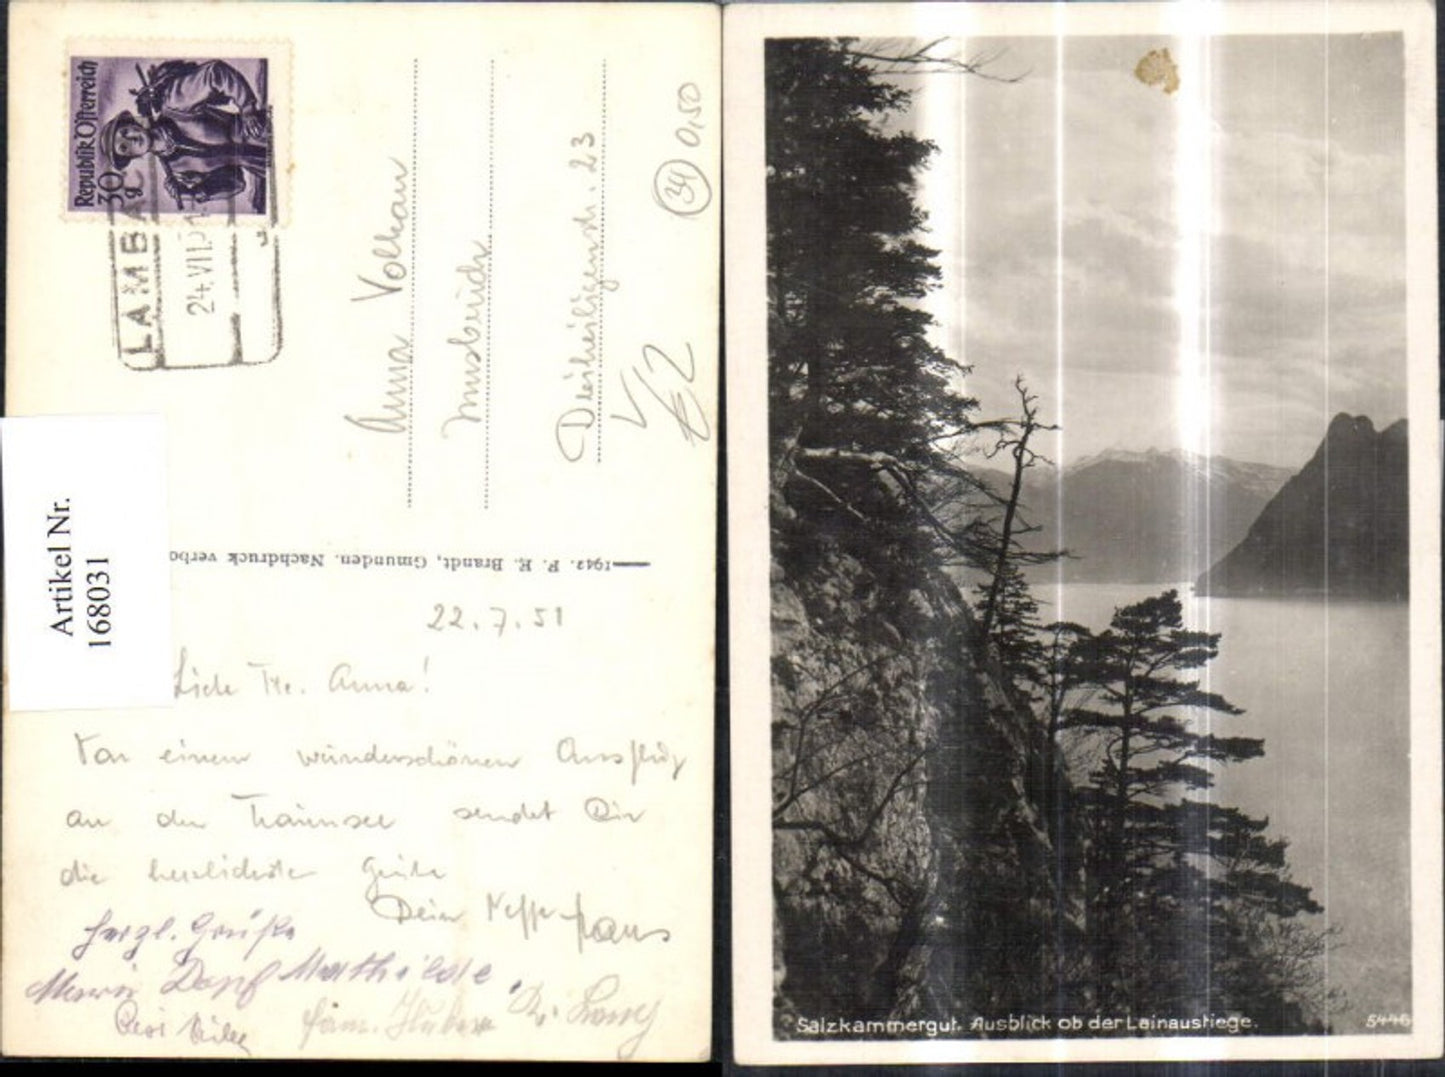 Republik Österreich
30 g
LAMBA
24. VI
Anna Volkan
Innsbruck
Dreiheiligenstr. 23
34 0,50
Artikel Nr.
168031
1942. P. E. Brandt, Gmunden. Nachdruck verbo
22.7.51
Liebe Tte. Anna!
Von einem wunderschönen Ausflug
an den Traunsee sendet Dir
die herzlichsten Grüße
Dein Neffe Hans
Herzl. Grüße
Maria Dopf Mathilde
Fam. Huber
Salzkammergut. Ausblick ob der Lainaustiege.
5446